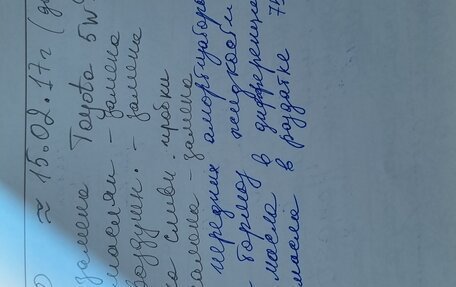 ≈ 15.02.17г (
замена Toyota 5W
маслян – замена
воздушн. – замена
слив. пробки
салона – замена
передних амортизаторо
тормоз жидкости
масла в дифференциа
масла в раздатке 75